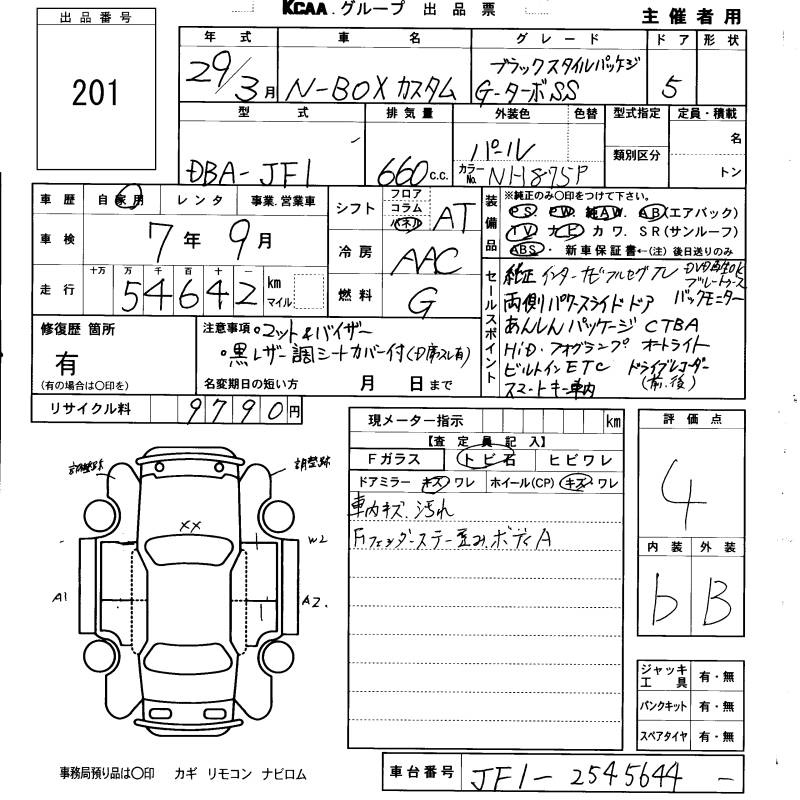 KCAA.グループ 出品票
主催者用
出品番号
201
年式 車名 グレード ドア 形状
29/3月 N-BOXカスタム ブラックスタイルパッケージ G-ターボSS 5
型式 排気量 外装色 色替 型式指定 定員・積載
DBA-JF1 660c.c. パール 類別区分 名
カラーNo. NH875P トン
車歴 自家用 レンタ 事業.営業車
車検 7年9月
走行 十万 万 千 百 十 一 km マイル
54642
シフト フロア コラム パネル AT
冷房 AAC
燃料 G
装備品 ※純正のみ〇印をつけて下さい。
PS. PW. 純AW. AB(エアバック)
TV ナビ カワ. SR(サンルーフ)
ABS. 新車保証書←(注) 後日送りのみ
セールスポイント
純正インターナビフルセグTV DVD再生OK ブルートゥース
両側パワースライドドア バックモニター
あんしんパッケージ CTBA
HiD.フォグランプ オートライト
ビルトインETC ドライブレコーダー(前.後)
スマートキー車内
修復歴 箇所
有
(有の場合は〇印を)
注意事項・マット&バイザー
・黒レザー調シートカバー付(D席スレ有)
名変期日の短い方 月 日まで
リサイクル料 9790円
現メーター指示 km
【査定員記入】
Fガラス トビ石 ヒビワレ
ドアミラー キズ ワレ ホイール(CP) キズ ワレ
車内キズ.汚れ
Fiフェンダーステー歪み.ボディA
評価点
4
内装 外装
b B
調整跡 調整跡
XX
W2
A1 A2
ジャッキ工具 有・無
パンクキット 有・無
スペアタイヤ 有・無
事務局預り品は〇印 カギ リモコン ナビロム
車台番号 JF1-2545644-